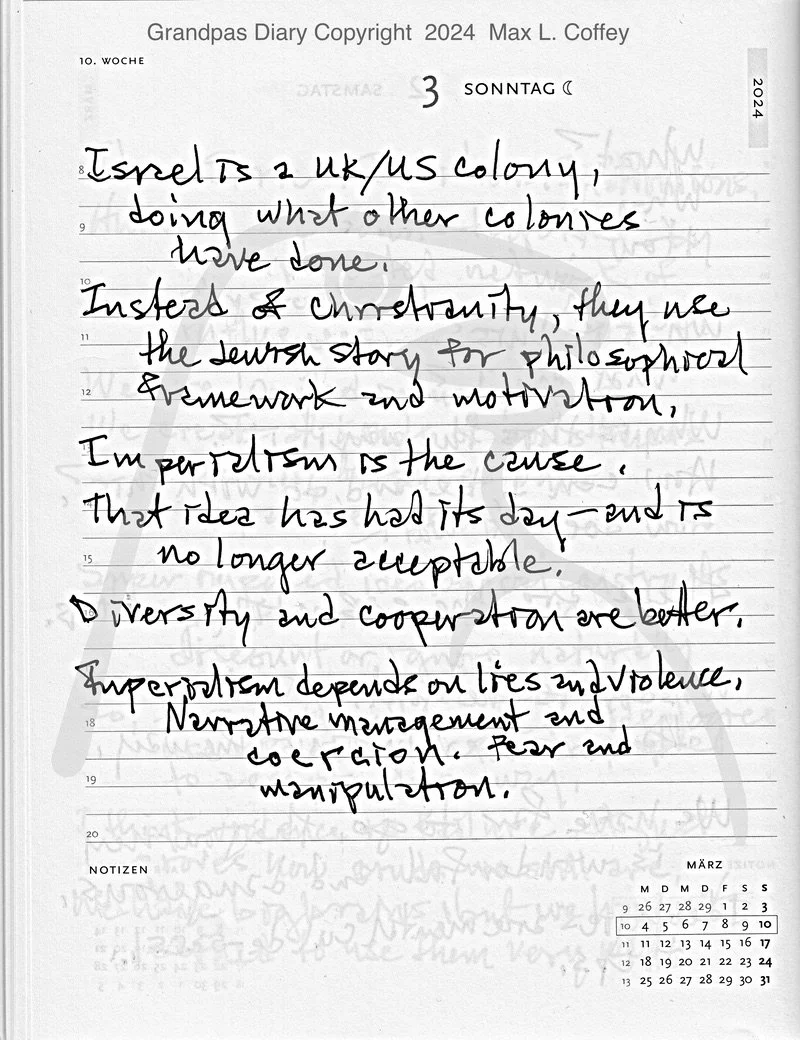 Grandpas Diary Copyright 2024 Max L. Coffey
10. WOCHE
3 SONNTAG
2024
8 Israel is a UK/US colony,
doing what other colonies
9
have done.
10
Instead of Christianity, they use
11
the Jewish story for philosophical
12 framework and motivation.
Imperialism is the cause.
That idea has had its day—and is
15 no longer acceptable.
Diversity and cooperation are better.
Imperialism depends on lies and violence.
18 Narrative management and
coercion. Fear and
19 manipulation.
20
NOTIZEN
MÄRZ
M D M D F S S
9 26 27 28 29 1 2 3
10 4 5 6 7 8 9 10
11 11 12 13 14 15 16 17
12 18 19 20 21 22 23 24
13 25 26 27 28 29 30 31